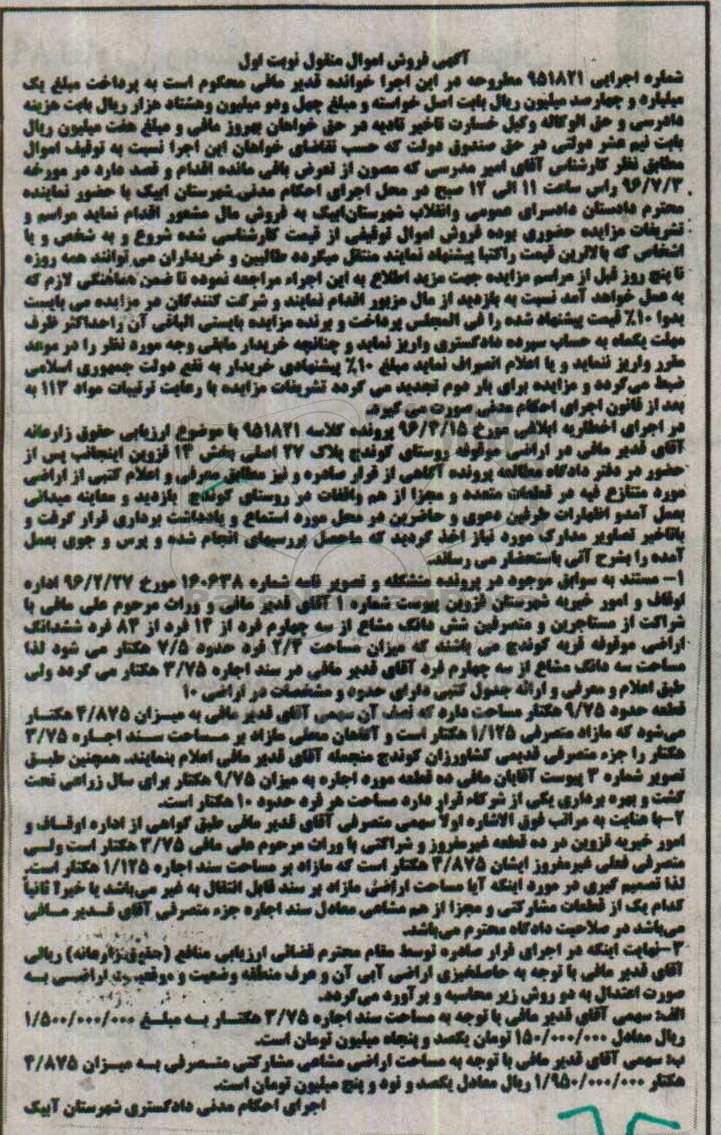 آگهی فروش اموال منقول نوبت اول
شماره اجرایی ۹۵۱۸۲۱ مطروحه در این اجرا خوانده قدیر مافی محکوم است به پرداخت مبلغ یک
میلیارد و چهارصد میلیون ریال بابت اصل خواسته و مبلغ چهل ودو میلیون وهشتاد هزار ریال بابت هزینه
دادرسی و حق الوکاله وکیل خسارت تاخیر تادیه در حق خواهان بهروز مافی و مبلغ هفت میلیون ریال
بابت نیم عشر دولتی در حق صندوق دولت که حسب تقاضای خواهان این اجرا نسبت به توقیف اموال
مطابق نظر کارشناس آقای امیر مدرسی که مصون از تعرض باقی مانده اقدام و قصد دارد در مورخه
۹۶/۷/۳ راس ساعت ۱۱ الی ۱۲ صبح در محل اجرای احکام مدنی شهرستان آبیک با حضور نماینده
محترم دادستان دادسرای عمومی وانقلاب شهرستان آبیک به فروش مال مشعور اقدام نماید مراسم و
تشریفات مزایده حضوری بوده فروش اموال توقیفی از قیمت کارشناسی شده شروع و به شخص و یا
اشخاص که بالاترین قیمت راکتبا پیشنهاد نمایند منتقل میگردد طالبین و خریداران می توانند همه روزه
تا پنج روز قبل از مراسم مزایده جهت مزید اطلاع به این اجراء مراجعه نموده تا ضمن هماهنگی لازم که
به عمل خواهد آمد نسبت به بازدید از مال مزبور اقدام نمایند و شرکت کنندگان در مزایده می بایست
بدوا ۱۰٪ قیمت پیشنهاد شده را فی المجلس پرداخت و برنده مزایده بایستی الباقی آن راحداکثر ظرف
مهلت یکماه به حساب سپرده دادگستری واریز نماید و چنانچه خریدار مابقی وجه مورد نظر را در موعد
مقرر واریز ننماید و یا اعلام انصراف نماید مبلغ ۱۰٪ پیشنهادی خریدار به نفع دولت جمهوری اسلامی
ضبط می‌گردد و مزایده برای بار دوم تجدید می گردد تشریفات مزایده با رعایت ترتیبات مواد ۱۱۳ به
بعد از قانون اجرای احکام مدنی صورت می گیرد.
در اجرای اخطاریه ابلاغی مورخ ۹۶/۳/۱۵ پرونده کلاسه ۹۵۱۸۲۱ با موضوع ارزیابی حقوق زارعانه
آقای قدیر مافی در اراضی موقوفه روستای کوندج پلاک ۲۷ اصلی بخش ۱۳ قزوین اینجانب پس از
حضور در دفتر دادگاه مطالعه پرونده آگاهی از قرار صادره و نیز مطابق معرفی و اعلام کتبی از اراضی
مورد متنازع فیه در قطعات متعدد و مجزا از هم واقعات در روستای کوندج بازدید و معاینه میدانی
بعمل آمدو اظهارات طرفین دعوی و حاضرین در محل مورد استماع و یادداشت برداری قرار گرفت و
باتاخیر تصاویر مدارک مورد نیاز اخذ گردید که ماحصل بررسیهای انجام شده و پرس و جوی بعمل
آمده را بشرح آتی باستحضار می رساند.
۱- مستند به سوابق موجود در پرونده متشکله و تصویر نامه شماره ۱۶۰۶۳۸ مورخ ۹۶/۲/۲۷ اداره
اوقاف و امور خیریه شهرستان قزوین پیوست شماره ۱ آقای قدیر مافی و وراث مرحوم علی مافی با
شراکت از مستاجرین و متصرفین شش دانگ مشاع از سه چهارم فرد از ۱۲ فرد از ۸۴ فرد ششدانگ
اراضی موقوفه قریه کوندج می باشند که میزان مساحت ۲/۴ فرد حدود ۷/۵ هکتار می شود لذا
مساحت سه دانگ مشاع از سه چهارم فرد آقای قدیر مافی در سند اجاره ۳/۷۵ هکتار می گردد ولی
طبق اعلام و معرفی و ارائه جدول کتبی دارای حدود و مشخصات در اراضی ۱۰
قطعه حدود ۹/۷۵ هکتار مساحت دارد که نصف آن سهمی آقای قدیر مافی به میزان ۴/۸۷۵ هکتار
می‌شود که مازاد متصرفی ۱/۱۲۵ هکتار است و آگاهان محلی مازاد بر مساحت سند اجاره ۳/۷۵
هکتار را جزء متصرفی قدیمی کشاورزان کوندج منجمله آقای قدیر مافی اعلام بنمایند. همچنین طبق
تصویر شماره ۳ پیوست آقایان مافی ده قطعه مورد اجاره به میزان ۹/۷۵ هکتار برای سال زراعی تحت
کشت و بهره برداری یکی از شرکاء قرار دارد مساحت هر فرد حدود ۱۰ هکتار است.
۲-با عنایت به مراتب فوق الاشاره اولاً سهمی متصرفی آقای قدیر مافی طبق گواهی از اداره اوقاف و
امور خیریه قزوین در ده قطعه غیرمفروز و شراکتی با وراث مرحوم علی مافی ۳/۷۵ هکتار است ولی
متصرفی فعلی غیرمفروز ایشان ۴/۸۷۵ هکتار است که مازاد بر مساحت سند اجاره ۱/۱۲۵ هکتار است.
لذا تصمیم گیری در مورد اینکه آیا مساحت اراضی مازاد بر سند قابل انتقال به غیر می‌باشد یا خیر؟ ثانیاً
کدام یک از قطعات مشارکتی و مجزا از هم مشاعی معادل سند اجاره جزء متصرفی آقای قدیر مافی
می‌باشد در صلاحیت دادگاه محترم می‌باشد.
۳-نهایت اینکه در اجرای قرار صادره توسط مقام محترم قضائی ارزیابی منافع (حقوق زارعانه) ریالی
آقای قدیر مافی با توجه به حاصلخیزی اراضی آبی آن و عرف منطقه وضعیت و موقعیت اراضی به
صورت اعتدال به دو روش زیر محاسبه و برآورد می‌گردد.
الف: سهمی آقای قدیر مافی با توجه به مساحت سند اجاره ۳/۷۵ هکتار به مبلغ ۱/۵۰۰/۰۰۰/۰۰۰
ریال معادل ۱۵۰/۰۰۰/۰۰۰ تومان یکصد و پنجاه میلیون تومان است.
ب: سهمی آقای قدیر مافی با توجه به مساحت اراضی مشاعی مشارکتی متصرفی به میزان ۴/۸۷۵
هکتار ۱/۹۵۰/۰۰۰/۰۰۰ ریال معادل یکصد و نود و پنج میلیون تومان است.
اجرای احکام مدنی دادگستری شهرستان آبیک